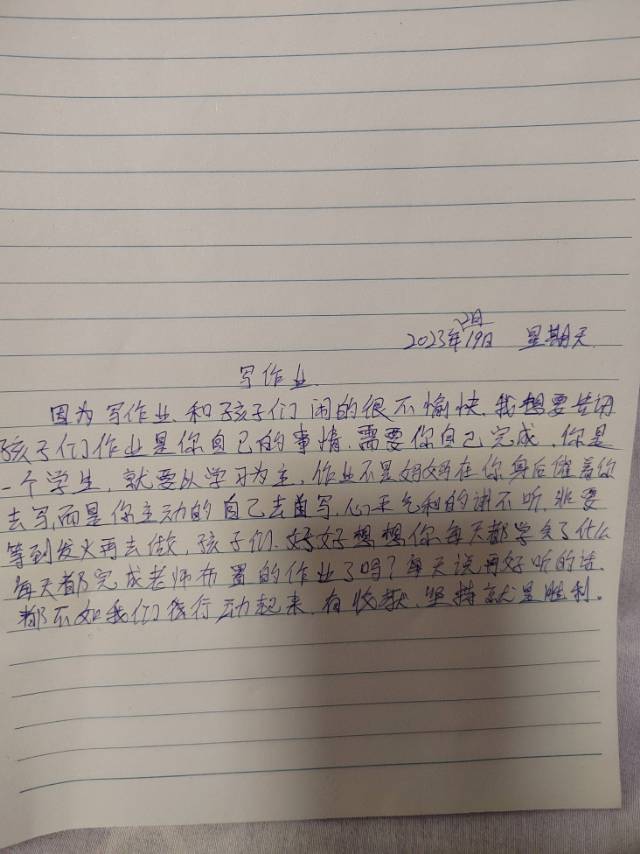 2023年2月19日 星期天
写作业
因为写作业和孩子们闹的很不愉快,我想要告诉
孩子们作业是你自己的事情,需要你自己完成,你是
一个学生,就要以学习为主,作业不是妈妈在你身后催着你
去写,而是你主动的自己去写,心平气和的讲不听,非要
等到发火再去做,孩子们,好好想想你每天都学会了什么
每天都完成老师布置的作业了吗?每天说再好听的话,
都不如我们行动起来,有收获,坚持就是胜利。